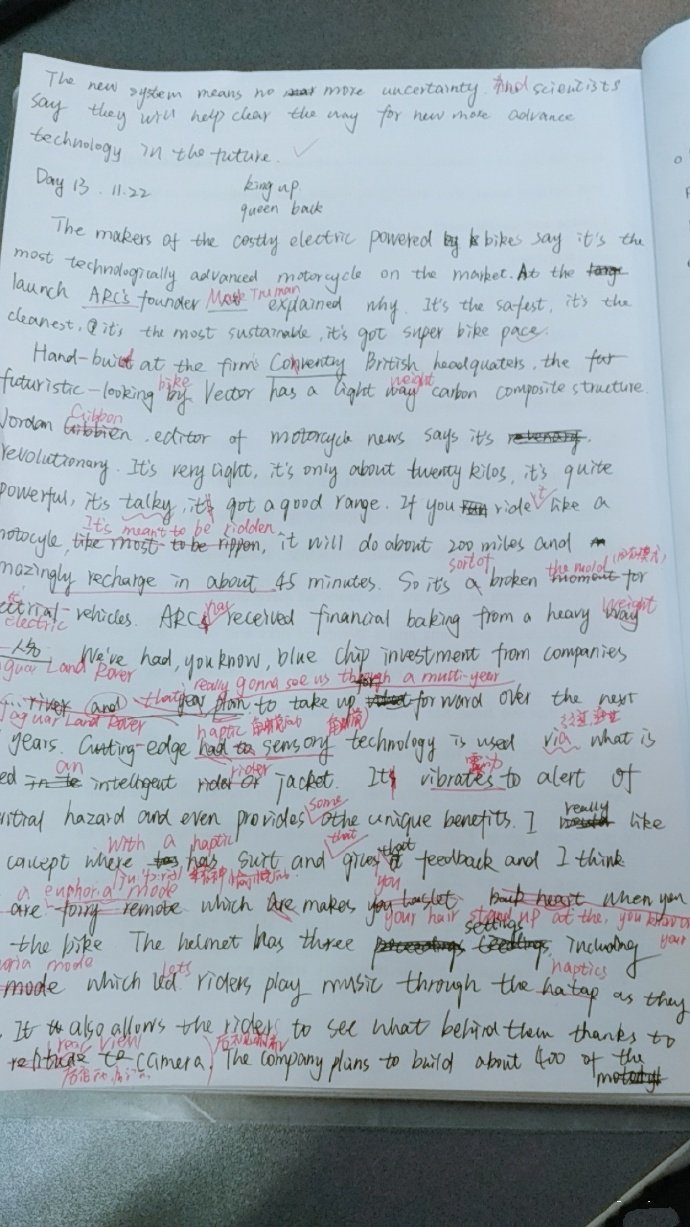 The new system means no more uncertainty. And scientists
say they will help clear the way for new more advance
technology in the future.
Day 13. 11.22
king up
queen back
The makers of the costly electric powered bikes say it's the
most technologically advanced motorcycle on the market. At the
launch ARC's founder Mark Truman explained why. It's the safest, it's the
cleanest, it's the most sustainable, it's got super bike pace.
Hand-built at the firm's Conventry British headquaters, the
futuristic-looking bike Vector has a light weight carbon composite structure.
Jordan Gibbon, editor of motorcycle news says it's
revolutionary. It's very light, it's only about twenty kilos, it's quite
powerful, it's talky, it got a good range. If you ride it like a
motocyle, It's meant to be ridden, it will do about 200 miles and
mazingly recharge in about 45 minutes. So it's sort of a broken the mold for
electric vehicles. ARC has received financial baking from a heavy weight
We've had, you know, blue chip investment from companies
guar Land Rover really gonna see us through a multi-year
Jaguar Land Rover and that plan to take up forward over the next
years. Cutting-edge haptic sensory technology is used via what is
ed an intelligent rider jacket. It vibrates 震动 to alert of
ntial hazard and even provides some othe unique benefits. I really like
concept where with a haptic suit and that gives that you feedback and I think
a euphoria mode which are makes your hair stand up at the, you know on your
the bike The helmet has three settings, including
oria mode which lets riders play music through the haptics as they
. It also allows the riders to see what behind them thanks to
rear view camera. The company plans to build about 400 of the